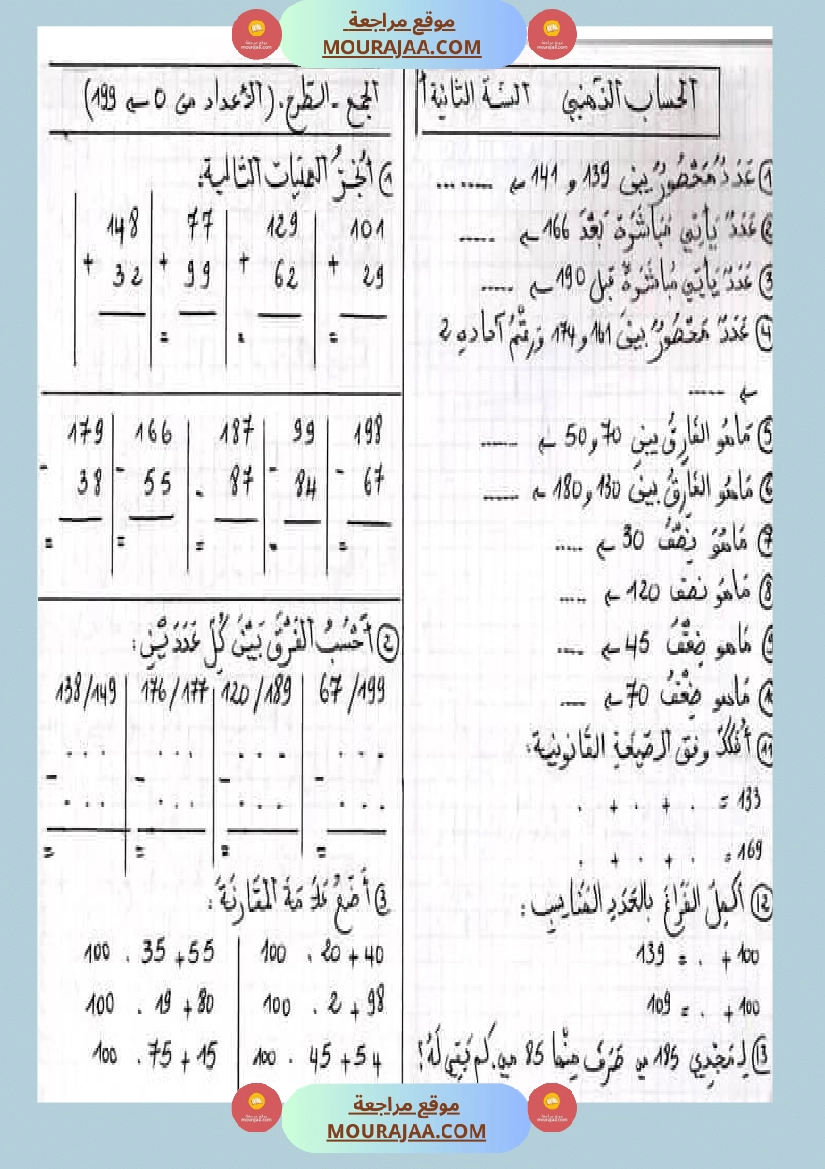 موقع مراجعة
MOURAJAA.COM
الحساب الذهني السنة الثانية
① عَدَدٌ مَحْصُورٌ بين 139 و 141 ← ........
② عَدَدٌ يأتي مباشرة بَعْدَ 166 ← .....
③ عَدَدٌ يأتي مباشرة قبل 190 ← .....
④ عَدَدٌ مَحْصُورٌ بين 161 و 174 وَرقْمُ آحاده 2
← .....
⑤ مَاهُو الفَارِقُ بين 70 و 50 ← .....
⑥ مَاهُو الفَارِقُ بين 130 و 180 ← .....
⑦ مَاهُوَ نِصْفُ 30 ← .....
⑧ مَاهُو نصف 120 ← ....
⑨ مَاهو ضِعْفُ 45 ← ....
⑩ مَاهو ضِعْفُ 70 ← ....
⑪ أُفَكِّكُ وفق الصِّيغَةِ القَانُونية:
133 = . + . + .
169 = . + . + .
⑫ أُكْمِلُ الفَرَاغَ بالعَدَدِ المُنَاسِبِ:
100 + . = 139
100 + . = 109
⑬ لِمَجْدِي 185 مي صَرَفَ مِنْهَا 85 مي. كم بَقِيَ لَهُ؟
الجمع - الطرح. (الأعداد من 0 ← 199)
① أُنْجِزُ العمليات التالية:
101 | 129 | 77 | 148
+ 29 | + 62 | + 99 | + 32
= | = | =
198 | 99 | 187 | 166 | 179
- 67 | - 84 | - 87 | - 55 | - 38
= | = | = | = | =
② أَحْسُبُ الفَرْقَ بَيْنَ كُلِّ عَدَدَيْنِ:
67 / 199 | 120 / 189 | 176 / 177 | 138 / 149
. . . | . . . | . . . | . . .
- . . . | - . . . | - . . . | - . . .
= | = | = | =
③ أَضَعُ عَلَامَةَ المُقَارَنَةَ:
40 + 20 . 100 | 55 + 35 . 100
98 + 2 . 100 | 80 + 19 . 100
54 + 45 . 100 | 15 + 75 . 100
موقع مراجعة
MOURAJAA.COM